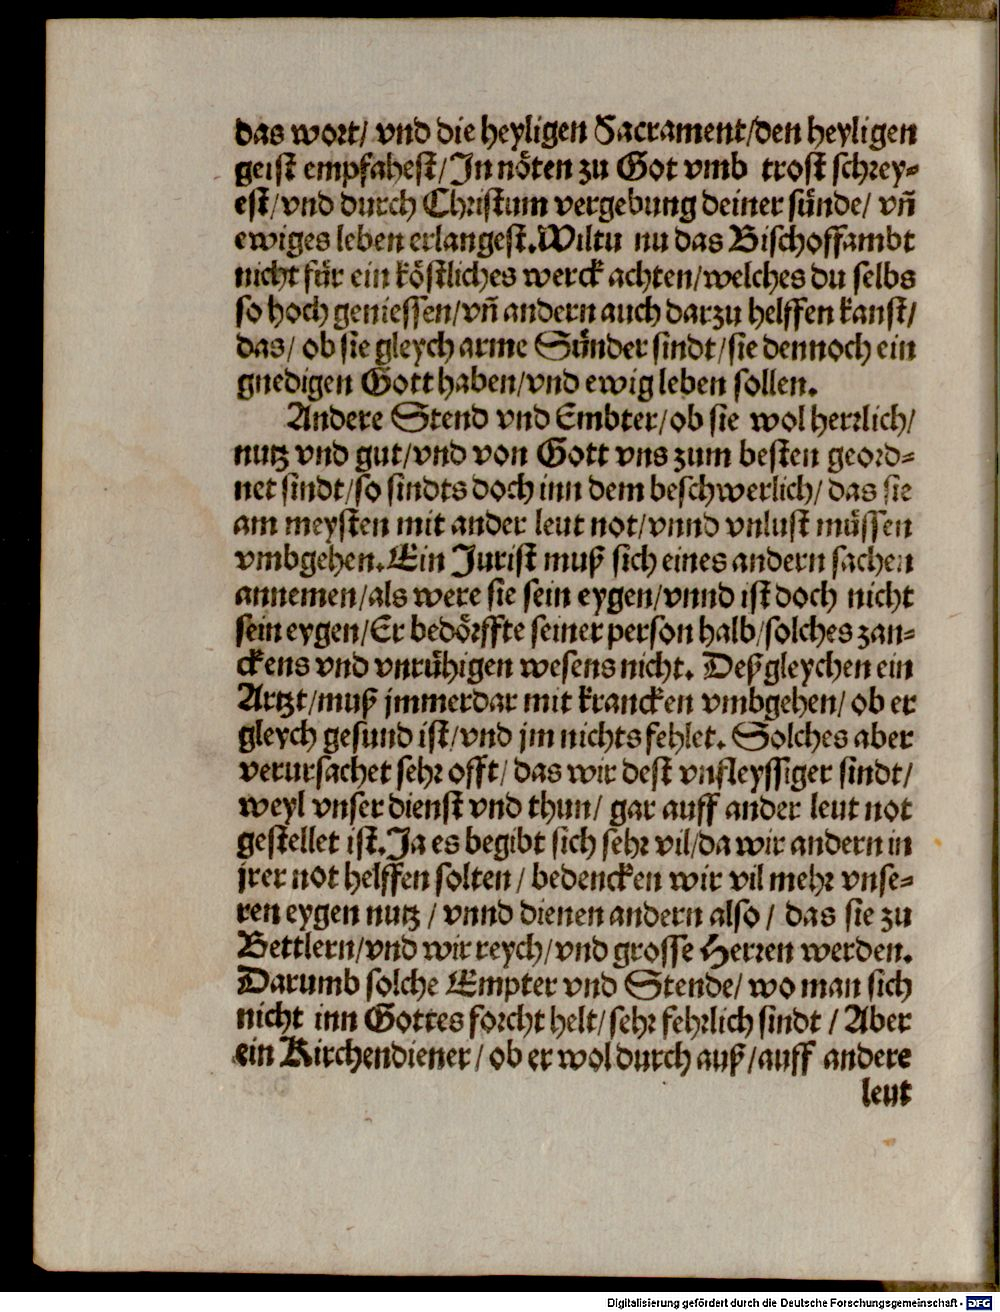 das wort/ vnd die heyligen Sacrament/den heyligen
geist empfahest/In nöten zu Got vmb trost schrey-
est/vnd durch Christum vergebung deiner sünde/ vñ
ewiges leben erlangest.Wiltu nu das Bischoffambt
nicht für ein köstliches werck achten/welches du selbs
so hoch geniessen/vñ andern auch darzu helffen kanst/
das/ ob sie gleych arme Sünder sindt/sie dennoch ein
gnedigen Gott haben/vnd ewig leben sollen.
Andere Stend vnd Embter/ob sie wol herrlich/
nutz vnd gut/vnd von Gott vns zum besten geord-
net sindt/so sindts doch inn dem beschwerlich/ das sie
am meysten mit ander leut not/vnnd vnlust müssen
vmbgehen.Ein Jurist muß sich eines andern sachen
annemen/als were sie sein eygen/vnnd ist doch nicht
sein eygen/Er bedörffte seiner person halb/solches zan-
ckens vnd vnrühigen wesens nicht. Deßgleychen ein
Artzt/muß jmmerdar mit krancken vmbgehen/ ob er
gleych gesund ist/vnd jm nichts fehlet. Solches aber
verursachet sehr offt/ das wir dest vnfleyssiger sindt/
weyl vnser dienst vnd thun/ gar auff ander leut not
gestellet ist.Ja es begibt sich sehr vil/da wir andern in
jrer not helffen solten/ bedencken wir vil mehr vnse-
ren eygen nutz/ vnnd dienen andern also/ das sie zu
Bettlern/vnd wir reych/vnd grosse Herren werden.
Darumb solche Empter vnd Stende/ wo man sich
nicht inn Gottes forcht helt/ sehr fehrlich sindt/ Aber
ein Kirchendiener/ ob er wol durch auß/auff andere
leut
Digitalisierung gefördert durch die Deutsche Forschungsgemeinschaft - DFG